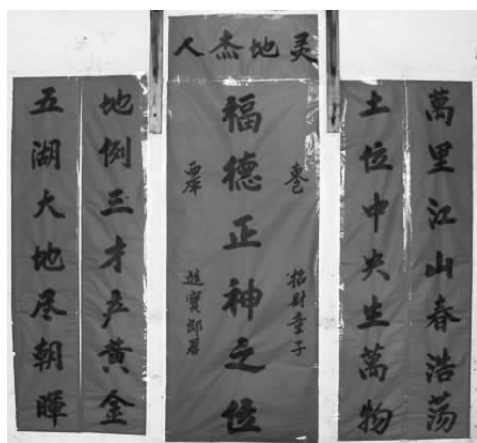 人杰地灵
萬里江山春浩荡
土位中央生萬物
招財童子
福德正神之位
進寶郎君
地例三才产黄金
五湖大地尽朝暉